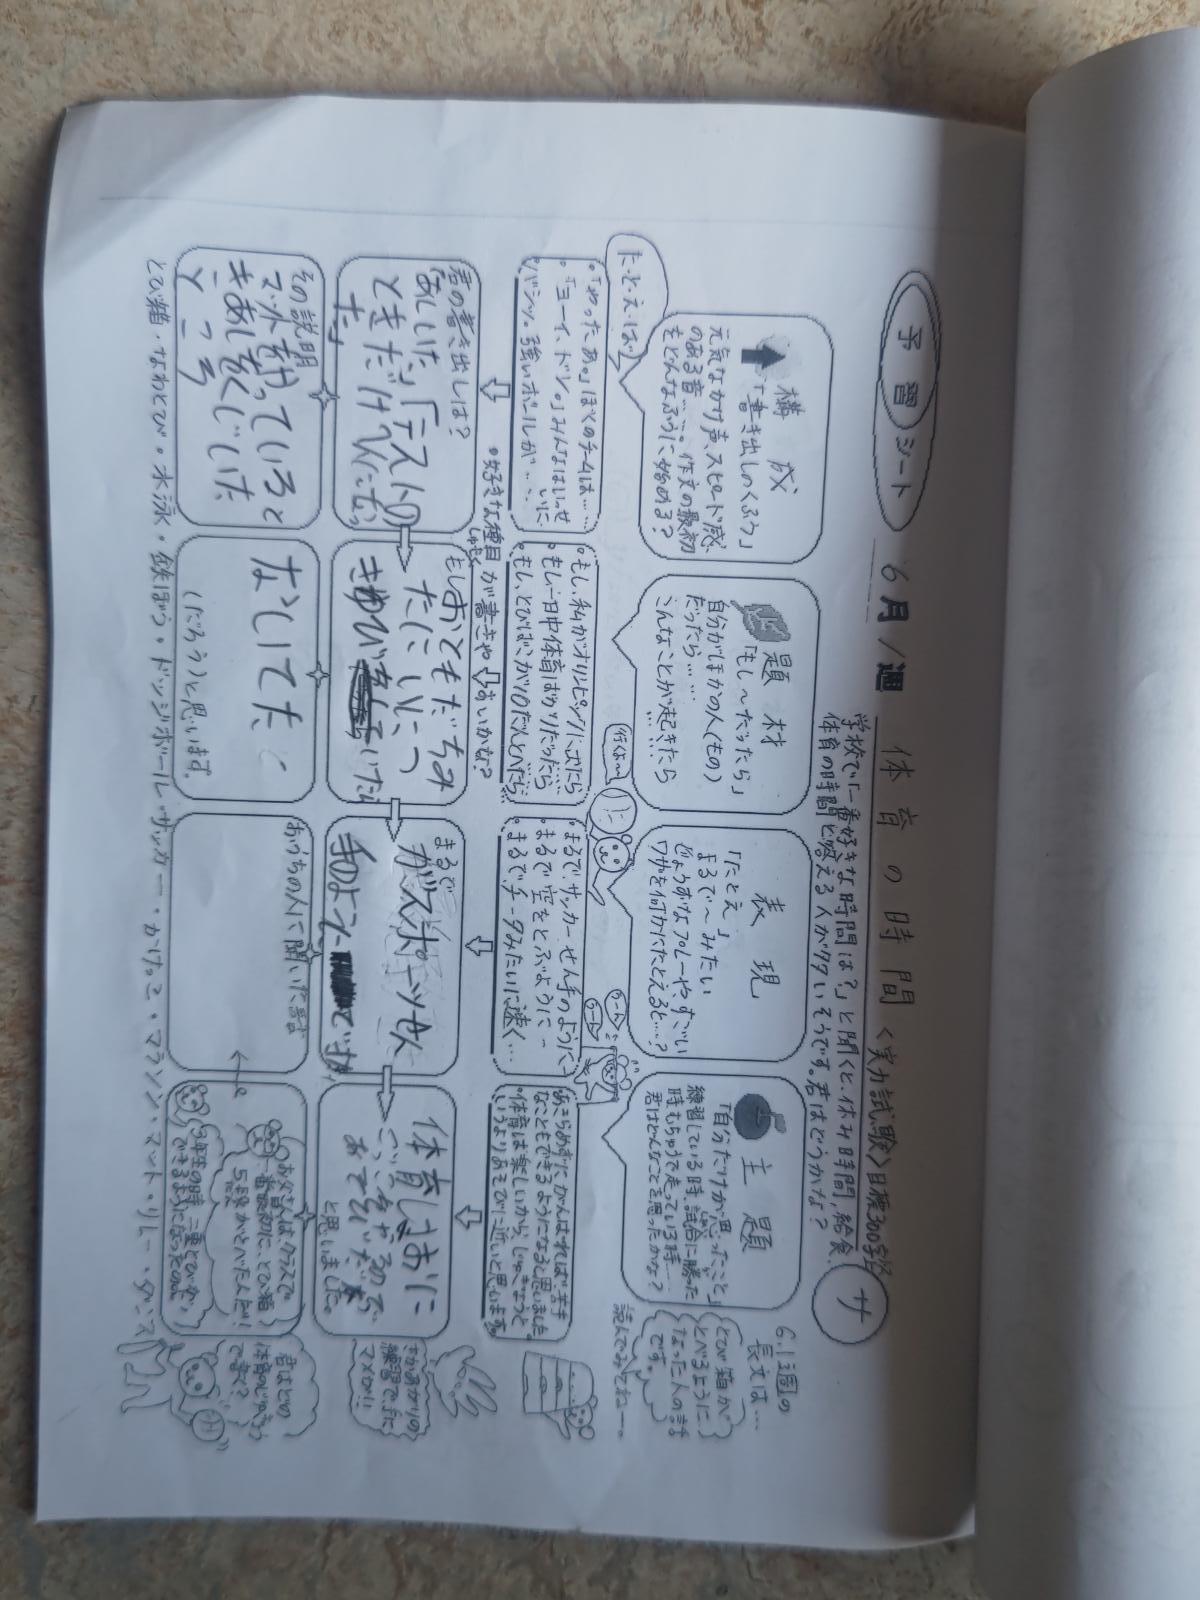 予習シート
6月1週 体育の時間 <実力試験>目標300字
サ
学校で「一番好きな時間は?」と聞くと、休み時間、給食、
体育の時間と答える人が多いそうです。君はどうかな?
構成
「書き出しのくふう」
元気なかけ声、スピード感
のある音……。作文の最初
をどんなふうに始める?
た・と・え・ば
・「やったあ。」ぼくのチームは……
・「ヨーイ、ドン。」みんなはいっせいに…
・バシッ。強いボールが……
君の書き出しは?
「あしいた」テストの
ときだけへんになっ
た」
その説明
マット
きあしをくじいた
題材
「もし〜だったら」
自分がほかの人(もの)
だったら……
こんなことが起きたら…
・もし、私がオリンピックに出たら
・もし一日中体育ばかりだったら
・もし、とびばこが10だんとべたら
・好きな種目が書きやすいかな?
しゅもく
もしおともだちみ
たに
(だろう)と思います。
表現
「たとえ」
まるで〜みたい
じょうずなプレーやすごい
ワザを何かにたとえると…?
行くよ〜
・まるで、サッカーせん手のように…
・まるで空をとぶように…
・まるで、チータみたいに速く…
まるで
がスポーツせん
手のように
です。
おうちの人に聞いた話は
主題
「自分だけが思ったこと」
練習している時、試合に勝った
時、むちゅうで走っている時……
君はどんなことを思ったかな?
うーん
うーん
・あきらめずにがんばれば苦手
なこともできるようになると思いました。
・体育は楽しいから、じゅぎょうと
いうよりあそびに近いと思います。
体育はおに
と思いました。
お父さんはクラスで
一番最初に、とび箱
5段がとべた人だ!
3年生の時、二重とびが
できるようになったのよ
6.1週の
長文は…
とび箱が
とべるように
なった人の話
です。
読んでみてね〜。
さかあがりの
練習で、手に
マメが!!
君はどの
体育のじゅぎょう
で書く?
とび箱・なわとび・水泳・鉄ぼう・ドッジボール・サッカー・かけっこ・マラソン・マット・リレー・ダンス